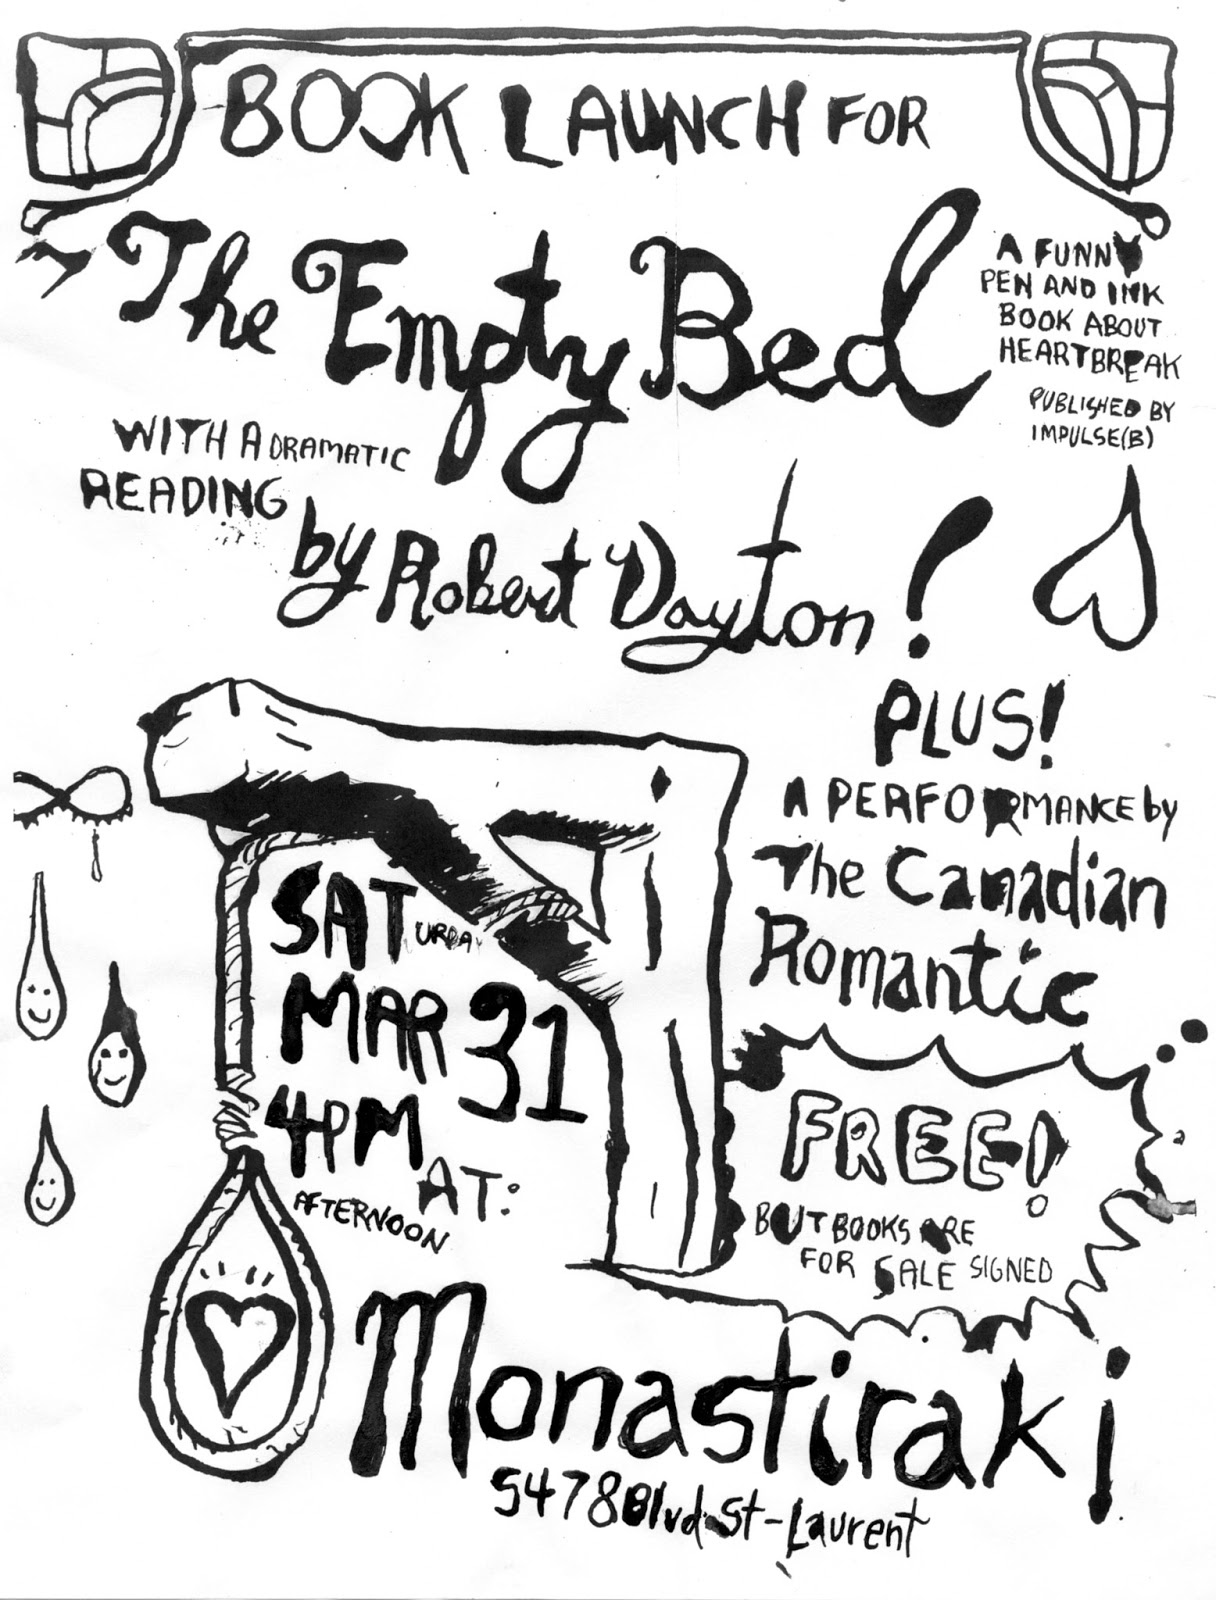 BOOK LAUNCH FOR
The Empty Bed
A FUNNY
PEN AND INK
BOOK ABOUT
HEARTBREAK
PUBLISHED BY
IMPULSE(B)
WITH A DRAMATIC
READING
by Robert Dayton!
PLUS!
A PERFORMANCE by
The Canadian
Romantic
SATURDAY
MAR 31
4PM
AFTERNOON
AT:
FREE!
BUT BOOKS ARE
FOR SALE SIGNED
Monastiraki
5478 Blvd. St-Laurent